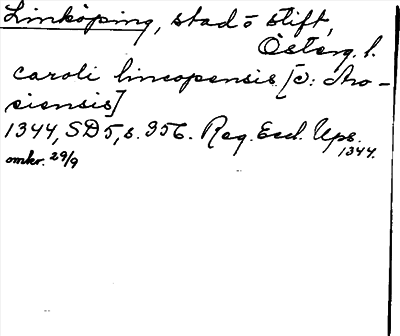 Linköping, stad o stift,
Österg. l.
caroli lincopensis [ɔ: Aro-
siensis]
1344, SD5, s. 356. Reg. Eccl. Ups.
1344.
omkr. 29/9